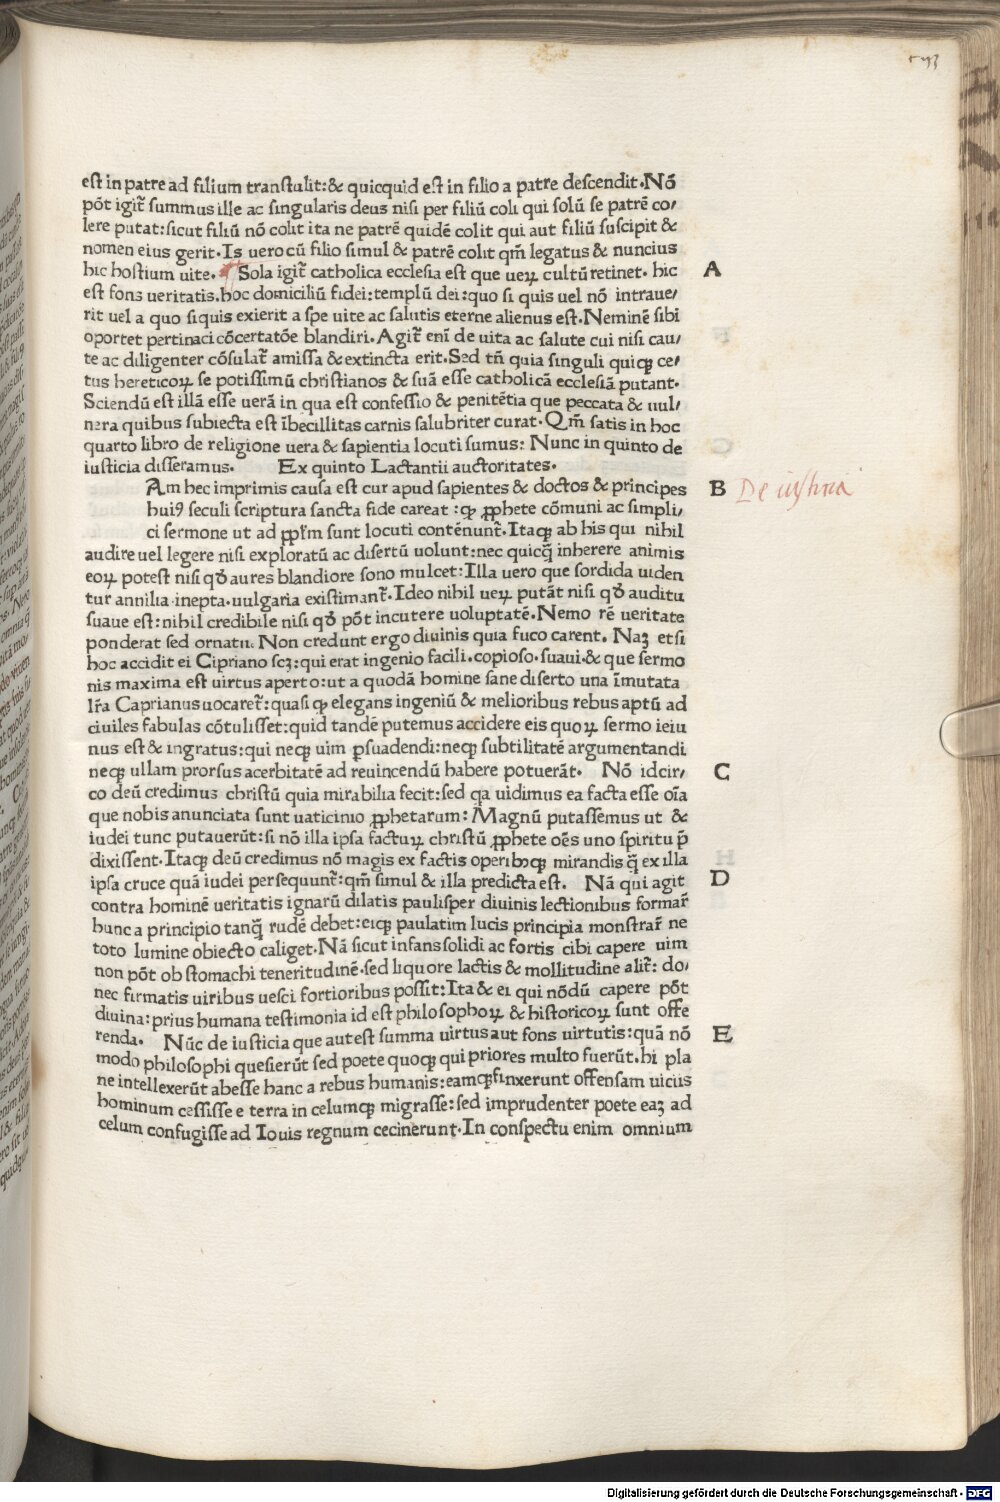 est in patre ad filium transtulit:& quicquid est in filio a patre descendit.Nō
pōt igit̃ summus ille ac singularis deus nisi per filiū coli qui solū se patrē co/
lere putat:sicut filiū nō colit ita ne patrē quidē colit qui aut filiū suscipit &
nomen eius gerit.Is uero cū filio simul & patrē colit qm̃ legatus & nuncius
hic hostium uite. Sola igit̃ catholica ecclesia est que ueꝝ cultū retinet. hic
A
est fons ueritatis.hoc domiciliū fidei:templū dei:quo si quis uel nō intraue/
rit uel a quo siquis exierit a spe uite ac salutis eterne alienus est.Neminē sibi
oportet pertinaci cōcertatōe blandiri.Agit̃ eni᷈ de uita ac salute cui nisi cau/
te ac diligenter cōsulat̃ amissa & extincta erit.Sed tn̄ quia singuli quiqꝫ ce/
tus hereticoꝝ se potissimū christianos & suā esse catholicā ecclesiā putant.
Sciendū est illā esse uerā in qua est confessio & penitētia que peccata & uul/
nera quibus subiecta est ībecillitas carnis salubriter curat.Qm̃ satis in hoc
quarto libro de religione uera & sapientia locuti sumus: Nunc in quinto de
iusticia disseramus. Ex quinto Lactantii auctoritates.
Am hec imprimis causa est cur apud sapientes & doctos & principes
B De iustitia
huiꝰ seculi scriptura sancta fide careat :qꝫ ꝓphete cōmuni ac simpli/
ci sermone ut ad ppl̃m sunt locuti contēnunt̃.Itaqꝫ ab his qui nihil
audire uel legere nisi exploratū ac disertū uolunt:nec quicq̄ inherere animis
eoꝝ potest nisi qđ aures blandiore sono mulcet:Illa uero que sordida uiden
tur annilia inepta.uulgaria existimant̃.Ideo nihil ueꝝ putāt nisi qđ auditu
suaue est:nihil credibile nisi qđ pōt incutere uoluptatē.Nemo rē ueritate
ponderat sed ornatu. Non credunt ergo diuinis quia fuco carent. Naꝫ etsi
hoc accidit ei Cipriano scꝫ:qui erat ingenio facili.copioso.suaui.& que sermo
nis maxima est uirtus aperto:ut a quodā homine sane diserto una īmutata
lr̃a Caprianus uocaret̃:quasi qꝫ elegans ingeniū & melioribus rebus aptū ad
ciuiles fabulas cōtulisset:quid tandē putemus accidere eis quoꝝ sermo ieiu
nus est & ingratus:qui neqꝫ uim ꝑsuadendi:neqꝫ subtilitatē argumentandi
neqꝫ ullam prorsus acerbitatē ad reuincendū habere potuerāt. Nō idcir/
C
co deū credimus christū quia mirabilia fecit:sed qa uidimus ea facta esse oīa
que nobis anunciata sunt uaticinio ꝓphetarum: Magnū putassemus ut &
iudei tunc putauerūt:si nō illa ipsa factuꝝ christū ꝓphete oēs uno spiritu p̄
dixissent.Itaqꝫ deū credimus nō magis ex factis operibꝰqꝫ mirandis q̄ ex illa
ipsa cruce quā iudei persequunt̃:qm̃ simul & illa predicta est. Nā qui agit
D
contra hominē ueritatis ignarū dilatis paulisper diuinis lectionibus formar̃
hunc a principio tanq̄ rudē debet:eiqꝫ paulatim lucis principia monstrar̃ ne
toto lumine obiecto caliget.Nā sicut infans solidi ac fortis cibi capere uim
non pōt ob stomachi teneritudinē.sed liquore lactis & mollitudine alit̃: do/
nec firmatis uiribus uesci fortioribus possit:Ita & ei qui nōdū capere pōt
diuina:prius humana testimonia id est philosophoꝝ & historicoꝝ sunt offe
renda. Nūc de iusticia que aut est summa uirtus aut fons uirtutis:quā nō
E
modo philosophi quesierūt sed poete quoqꝫ qui priores multo fuerūt.hi pla
ne intellexerūt abesse hanc a rebus humanis:eamqꝫ finxerunt offensam uiciis
hominum cessisse e terra in celumqꝫ migrasse:sed imprudenter poete eaꝫ ad
celum confugisse ad Iouis regnum cecinerunt.In conspectu enim omnium
Digitalisierung gefördert durch die Deutsche Forschungsgemeinschaft - DFG